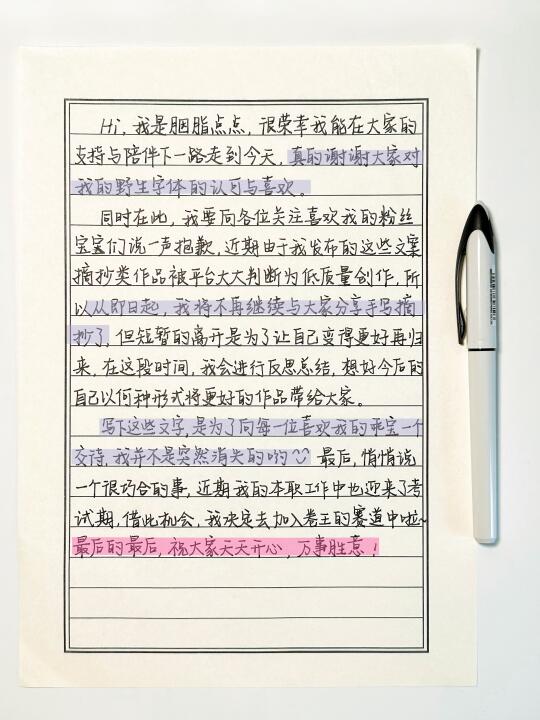 Hi,我是胭脂点点,很荣幸我能在大家的
支持与陪伴下一路走到今天,真的谢谢大家对
我的野生字体的认可与喜欢。
同时在此,我要向各位关注喜欢我的粉丝
宝宝们说一声抱歉,近期由于我发布的这些文案
摘抄类作品被平台大大判断为低质量创作,所
以从即日起,我将不再继续与大家分享手写摘
抄了,但短暂的离开是为了让自己变得更好再归
来,在这段时间,我会进行反思总结,想好今后的
自己以何种形式将更好的作品带给大家。
写下这些文字,是为了向每一位喜欢我的乖宝一个
交待,我并不是突然消失的哟~ 最后,悄悄说
一个很巧合的事,近期我的本职工作中也迎来了考
试期,借此机会,我决定去加入卷王的赛道中啦~
最后的最后,祝大家天天开心,万事胜意!